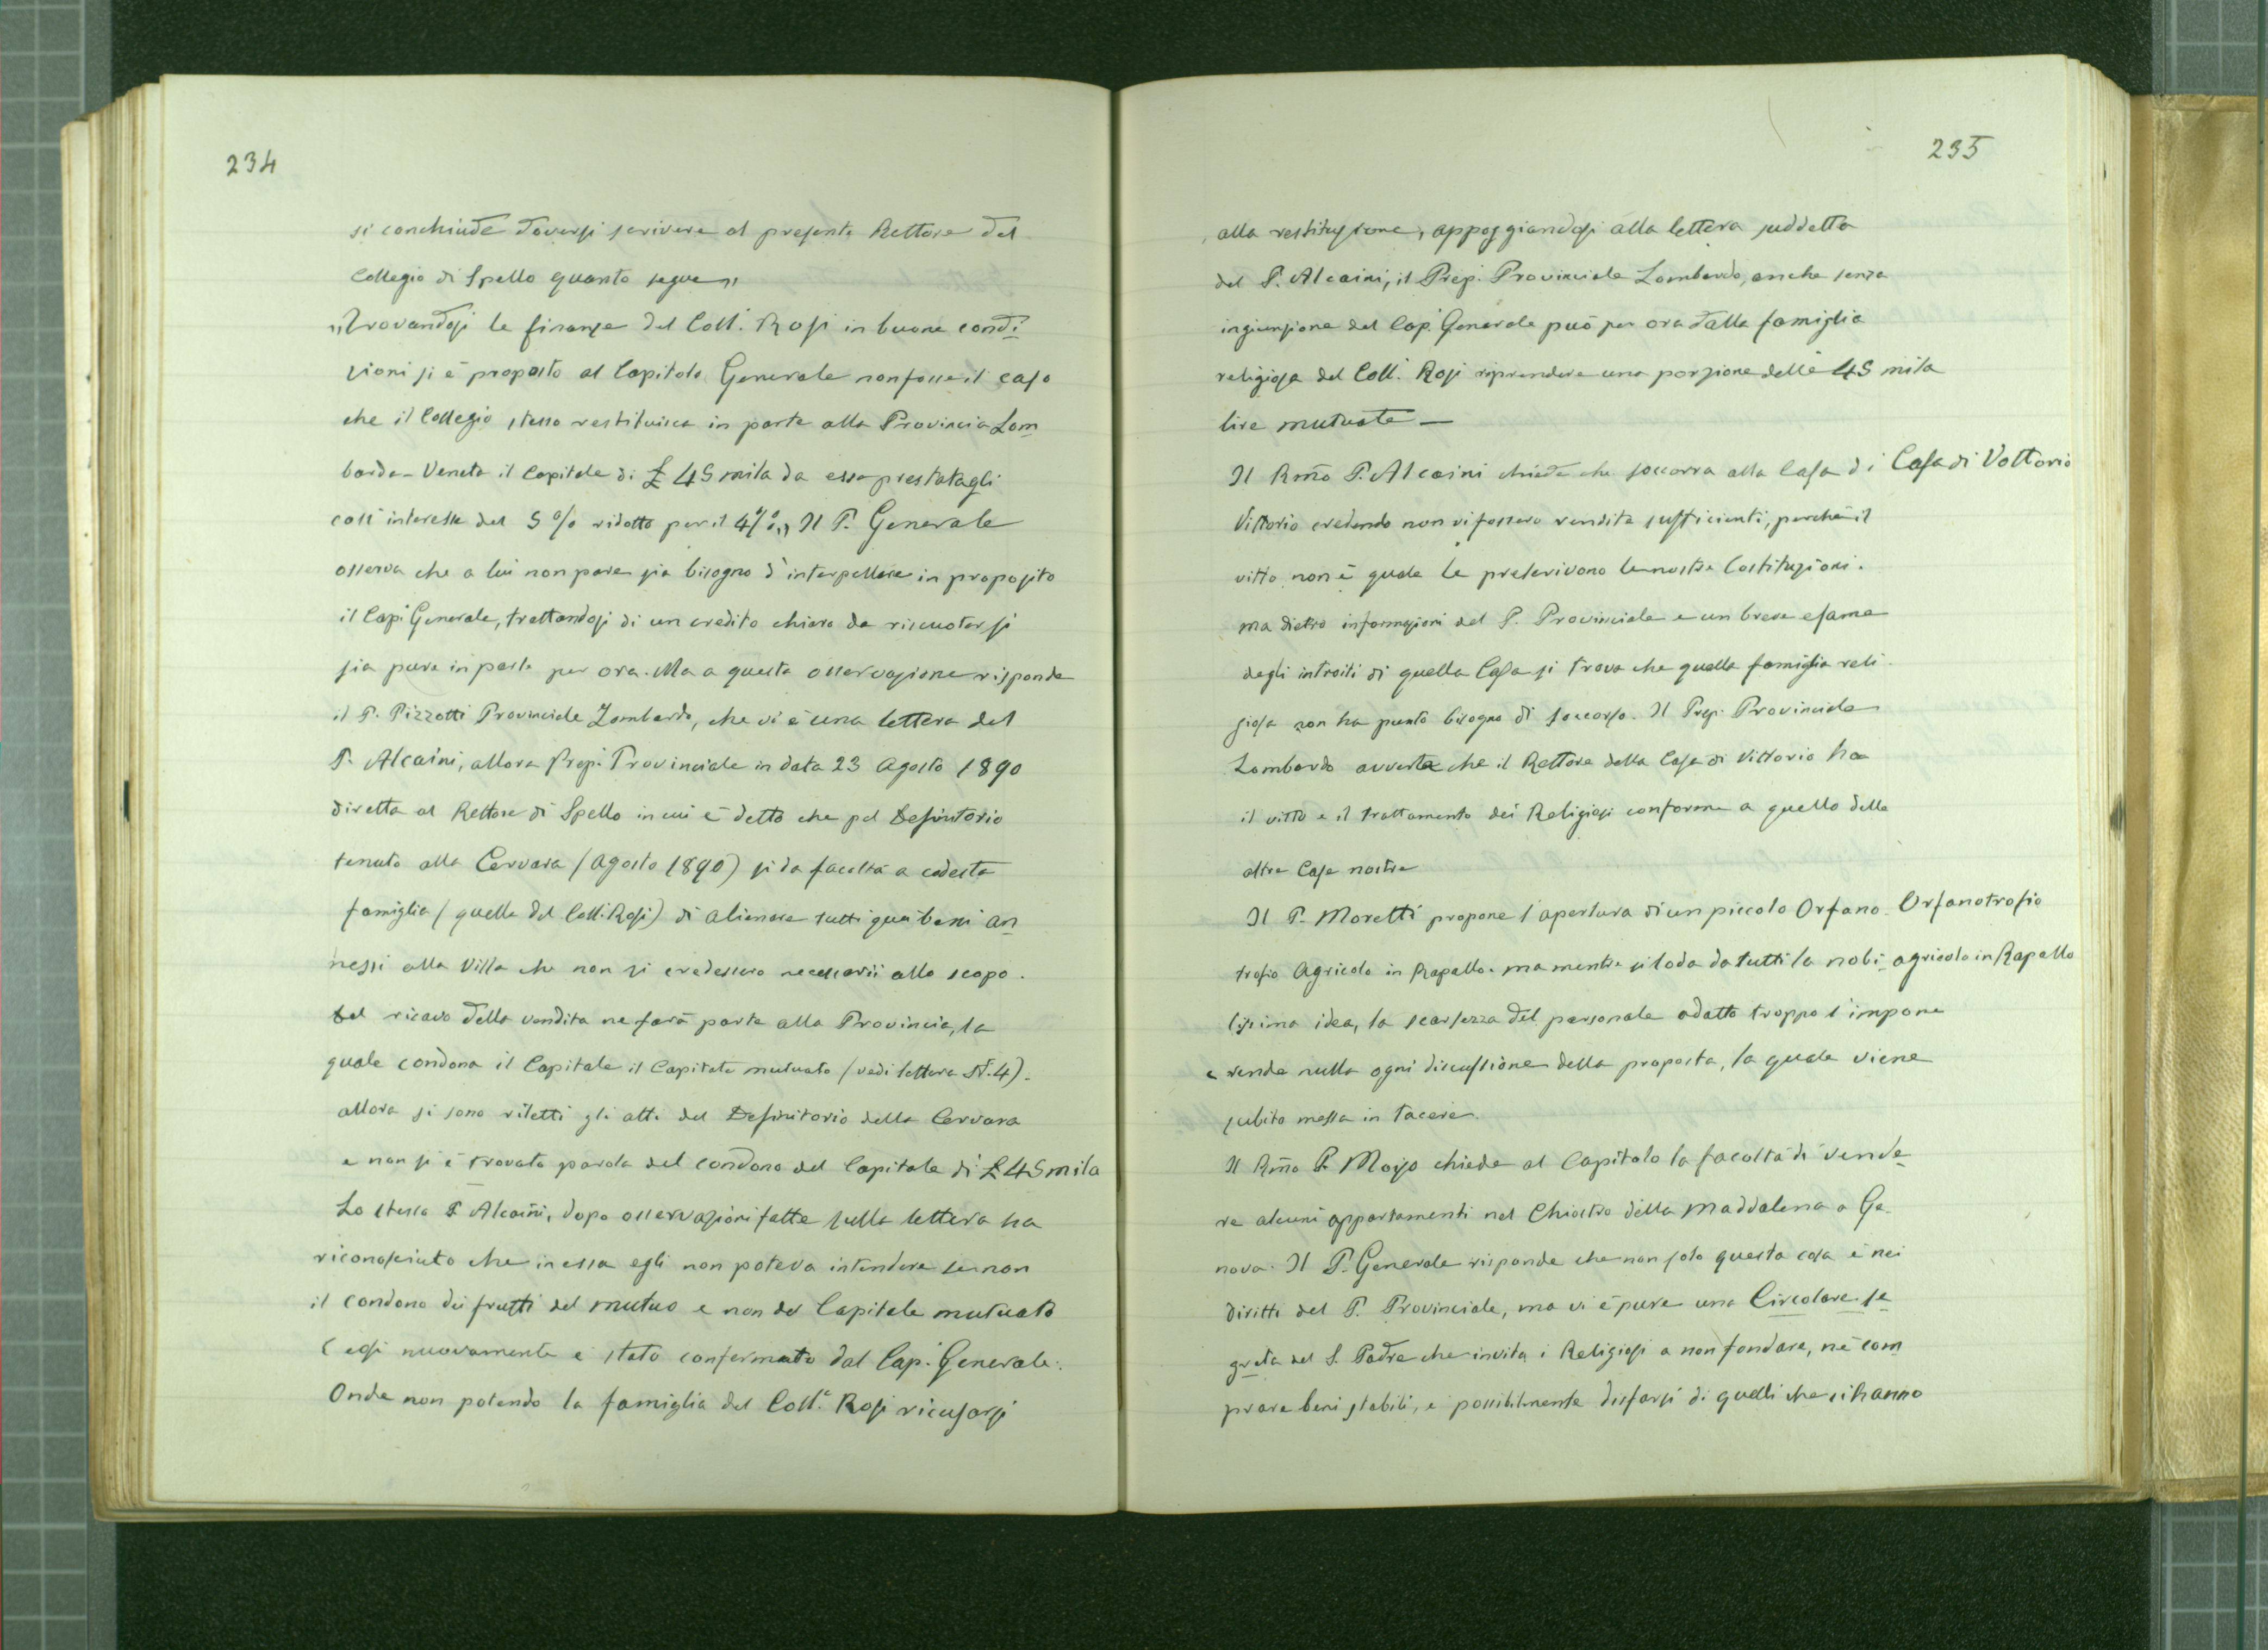 234
si conchiude doversi scrivere al presente Rettore del
Collegio di Spello quanto segue „
„Trovandosi le finanze del Coll.º Rosi in buone condi
zioni si è proposto al Capitolo Generale non fosse il caso
che il Collegio stesso restituisca in parte alla Provincia Lom
barda-Veneta il Capitale di £ 45 mila da essa prestatagli
coll'interesse del 5 % ridotto poi il 4 %.„ Il P. Generale
osserva che a lui non pare sia bisogno d'interpellare in proposito
il Cap. Generale, trattandosi di un credito chiaro da riscuotersi
sia pure in parte per ora. Ma a questa osservazione risponde
il P. Pizzotti Provinciale Lombardo, che vi è una lettera del
P. Alcaini, allora Prep. Provinciale in data 23 Agosto 1890
diretta al Rettore di Spello in cui è detto che pel Definitorio
tenuto alla Cervara (Agosto 1890) si da facoltà a codesta
famiglia (quella del Coll. Rosi) di alienare tutti quei beni an
nessi alla Villa che non si credessero necessarii allo scopo.
Del ricavo della vendita ne farà parte alla Provincia, la
quale condona il Capitale il Capitale mutuato (vedi lettera N. 4).
allora si sono riletti gli atti del Definitorio della Cervara
e non si è trovata parola del condono del Capitale di £ 45 mila
Lo stesso P. Alcaini, dopo osservazioni fatte sulla lettera ha
riconosciuto che in essa egli non poteva intendere se non
il condono dei frutti del mutuo e non del Capitale mutuato
E così nuovamente è stato confermato dal Cap. Generale.
Onde non potendo la famiglia del Coll.º Rosi ricusarsi
235
alla restituzione, appoggiandosi alla lettera suddetta
del P. Alcaini, il Prep. Provinciale Lombardo, anche senza
ingiunzione del Cap. Generale può per ora dalla famiglia
religiosa del Coll. Rosi riprendere una porzione delle 45 mila
lire mutuate —
Il Rmo P. Alcaini chiede che soccorra alla Casa di Casa di Vottorio
Vittorio credendo non vi fossero rendite sufficienti, perchè il
vitto non è quale le prescrivono le nostre Costituzioni.
ma dietro informazioni del P. Provinciale e un breve esame
degli introiti di quella Casa si trova che quella famiglia reli-
giosa non ha punto bisogno di soccorso. Il Prep. Provinciale
Lombardo avverte che il Rettore della Casa di Vittorio ha
il vitto e il trattamento dei Religiosi conforme a quello delle
altre Case nostre
Il P. Moretti propone l'apertura di un piccolo Orfano- Orfanotrofio
trofio Agricolo in Rapallo. ma mentre si loda da tutti la nobi- agricolo in Rapallo
lissima idea, la scarsezza del personale adatto troppo s'impone
e rende nulla ogni discussione della proposta, la quale viene
subito messa in tacere.
Il Rmo P. Moizo chiede al Capitolo la facoltà di vende
re alcuni appartamenti nel Chiostro della Maddalena a Ge-
nova. Il P. Generale risponde che non solo questa cosa è nei
diritti del P. Provinciale, ma vi è pure una Circolare se
greta del S. Padre che invita i Religiosi a non fondare, nè com
prare beni stabili, e possibilmente disfarsi di quelli che si hanno